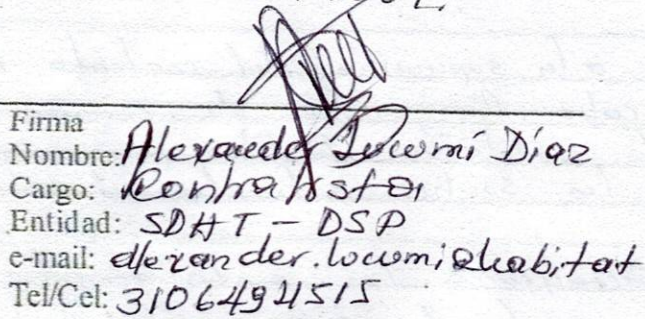 Firma
Nombre: Alexander Lucumí Díaz
Cargo: Contratista
Entidad: SDHT - DSP
e-mail: alexander.lucumi@habitat
Tel/Cel: 3106494515